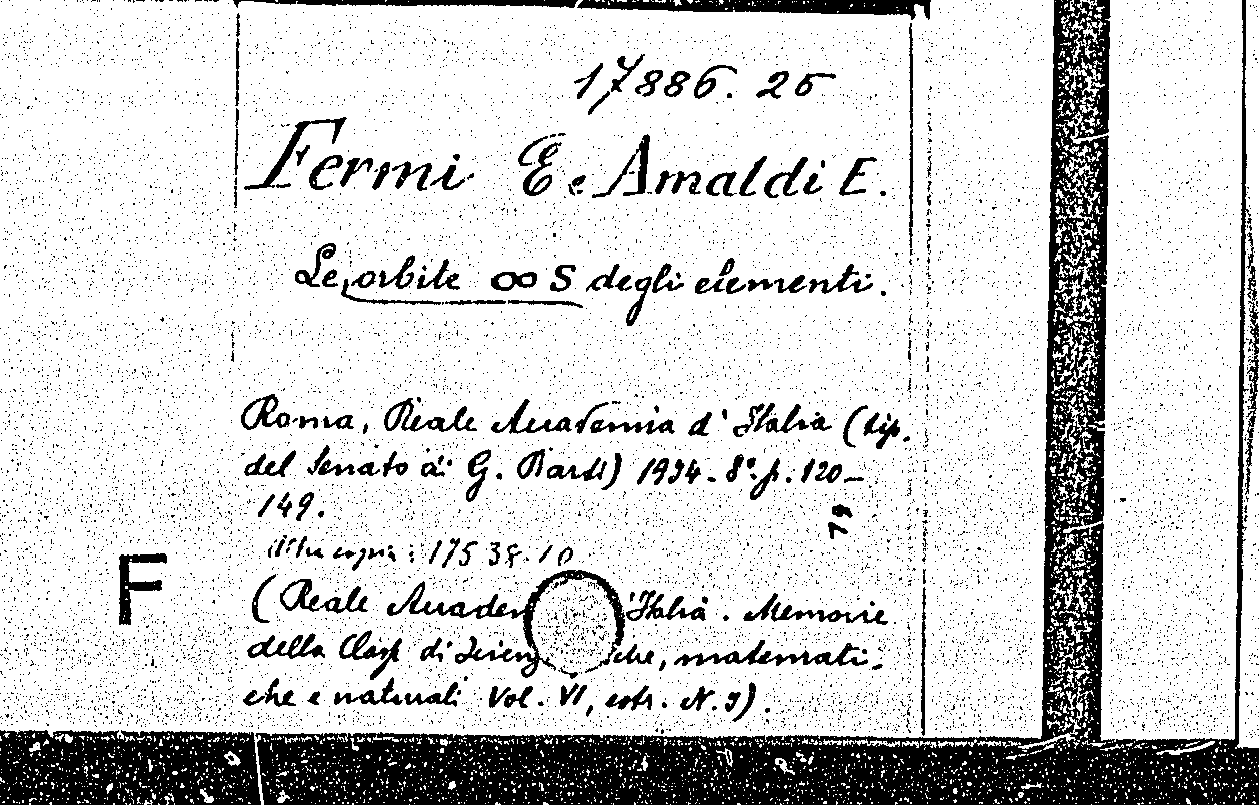 17886. 25
Fermi E. e Amaldi E.
Le orbite ∞ S degli elementi.
Roma, Reale Accademia d'Italia (tip.
del Senato di G. Bardi) 1934 - 8°. p. 120-
149.
79
Altra copia: 17538.10
F
(Reale Accadem 'Italia. Memorie
della Class di Scienz iche, matemati-
che e naturali Vol. VI, estr. N. 9).